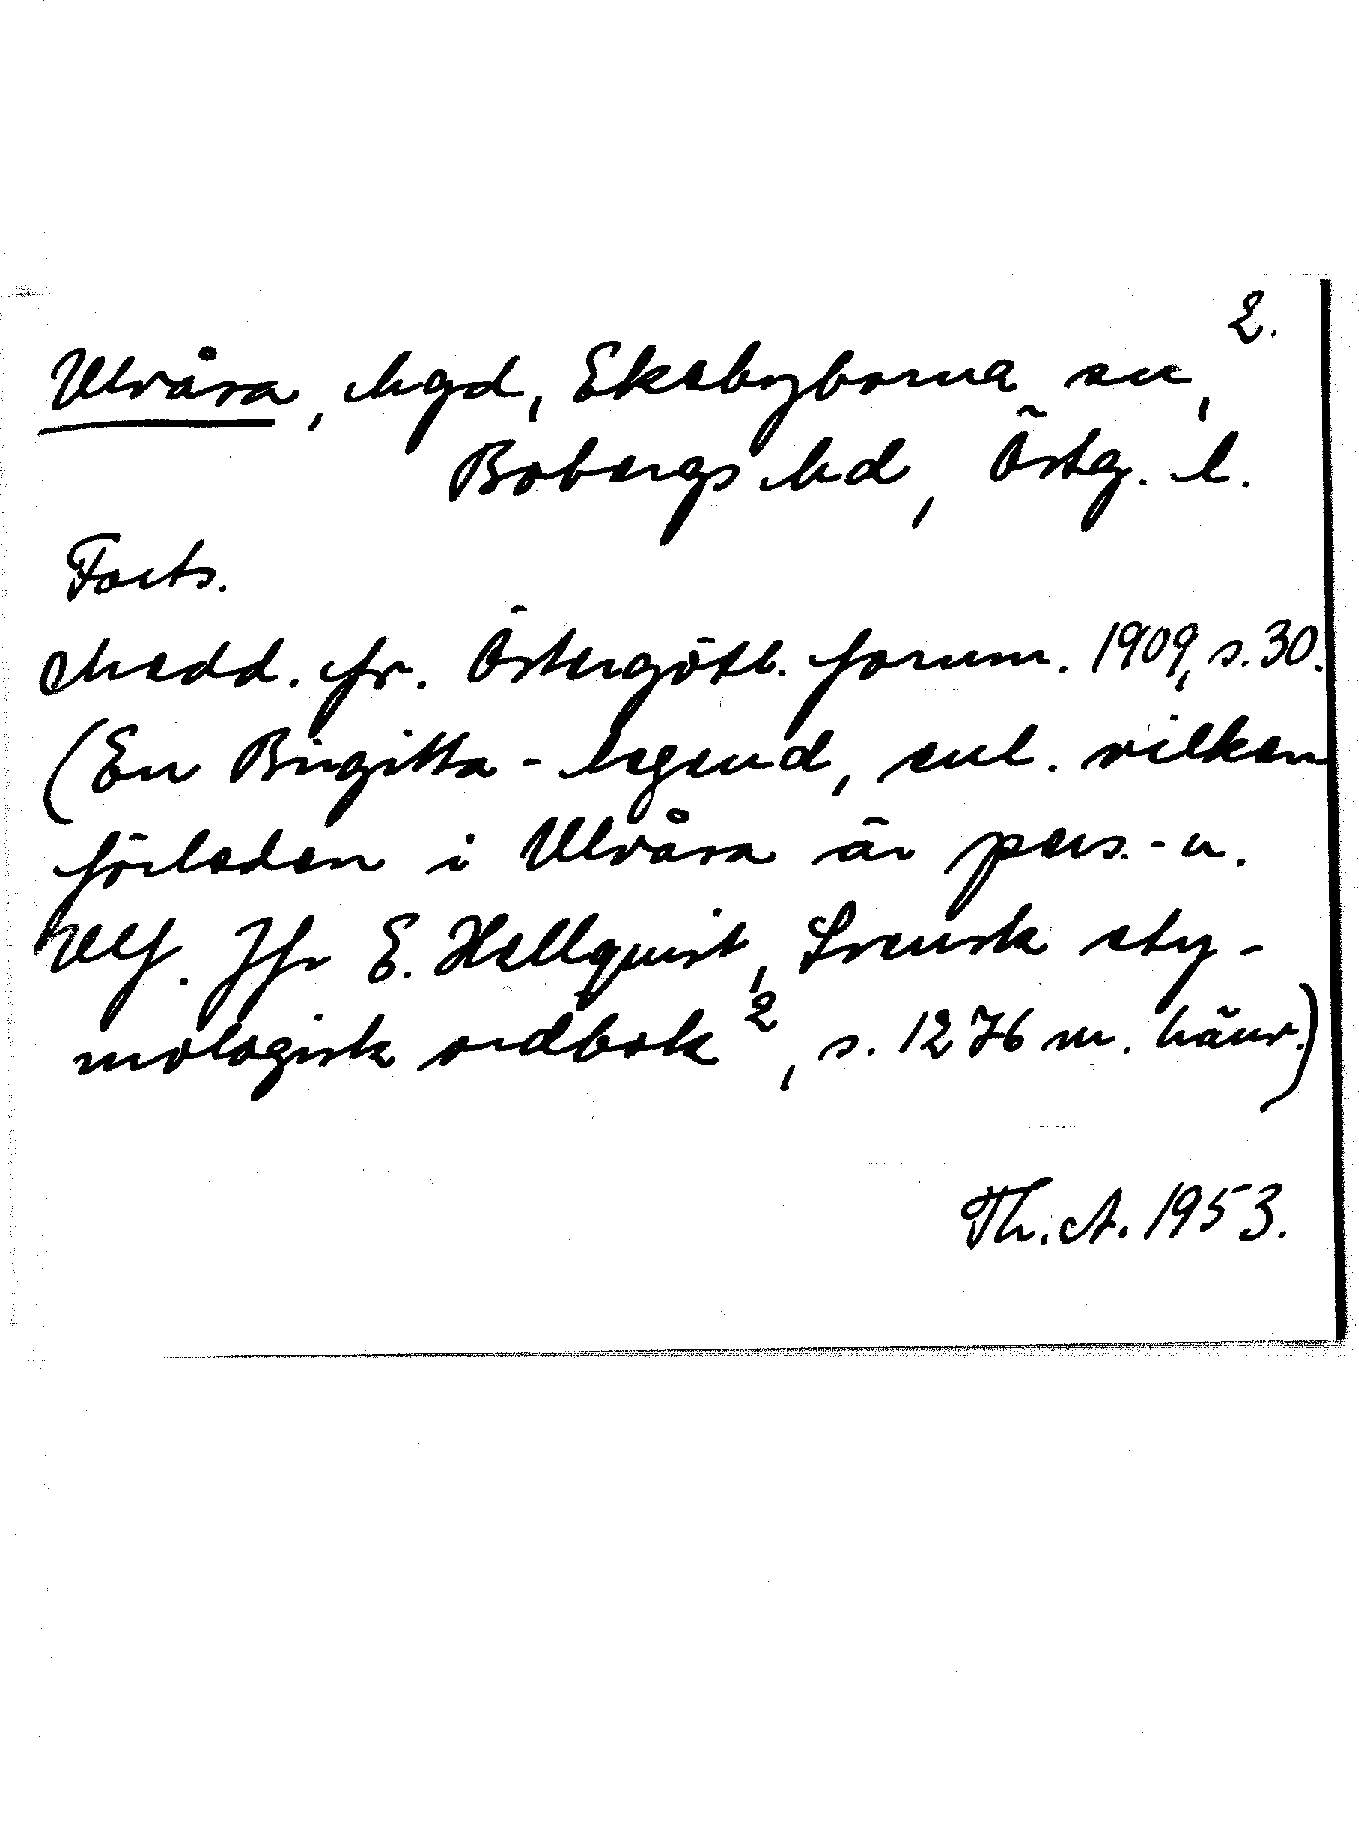 2.
Ulvåsa, hgd, Ekebyborna sn,
Bobergs hd, Östg. l.
Forts.
Medd. fr. Östergötl. fornm. 1909, s. 30.
(En Birgitta-legend, enl. vilken
förleden i Ulvåsa är pers.-n.
Ulf. Jfr E. Hellquist, Svensk ety-
mologisk ordbok², s. 1276 m. hänv.)
Th. A. 1953.